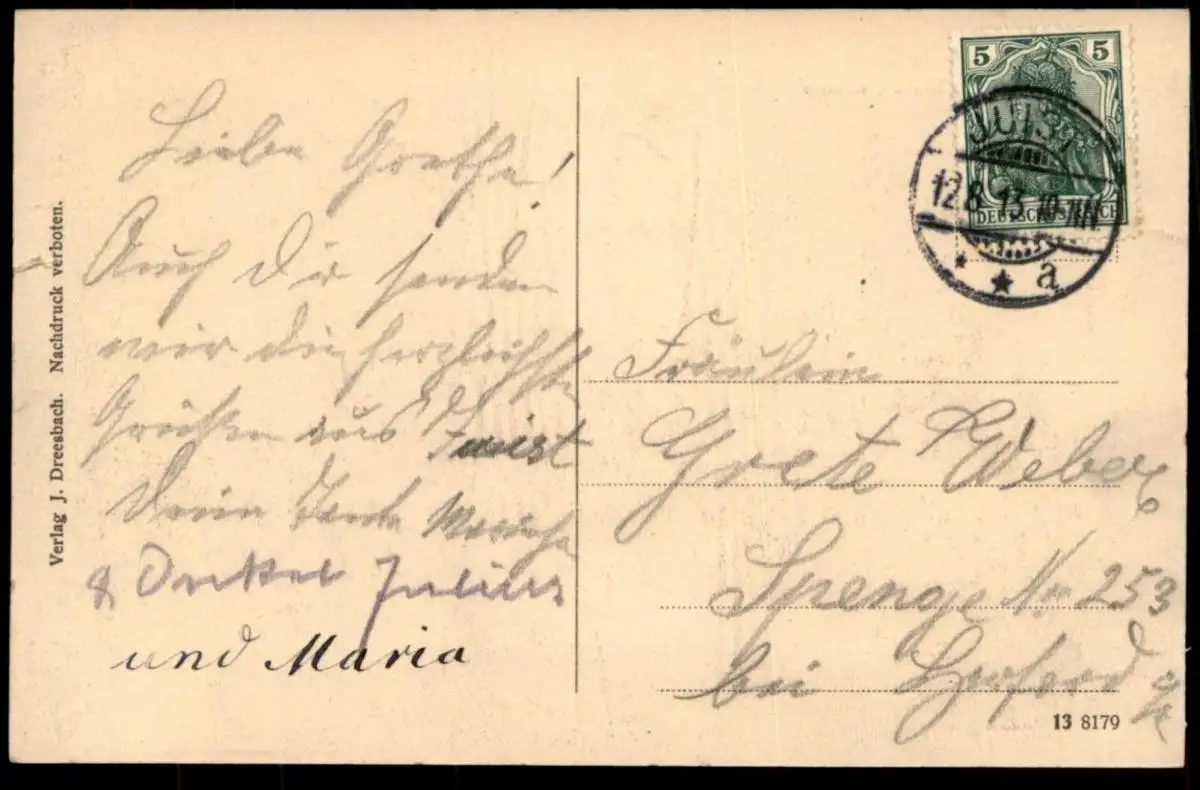 Verlag J. Dreesbach. Nachdruck verboten.
Liebe Grethe!
Auch Dir senden
wir die herzlichste
Grüßen aus Juist
Deine Tante
& Onkel Julius
und Maria
5 5
DEUTSCHES REICH
JUIST
12.8.13.10-11N.
* * a
Fräulein
Grete Weber
Spenge Nr. 253
bei Herford
13 8179